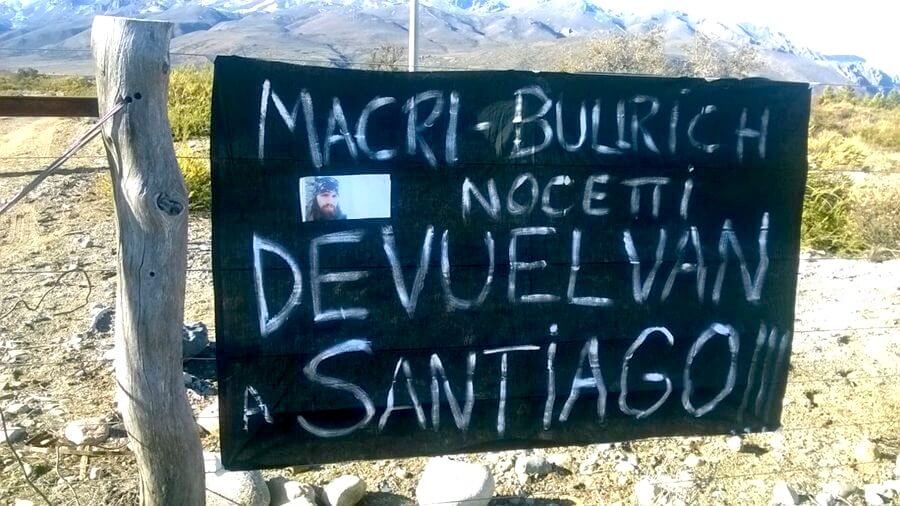 MACRI - BULLRICH
NOCETTI
DEVUELVAN
A SANTIAGO!!!